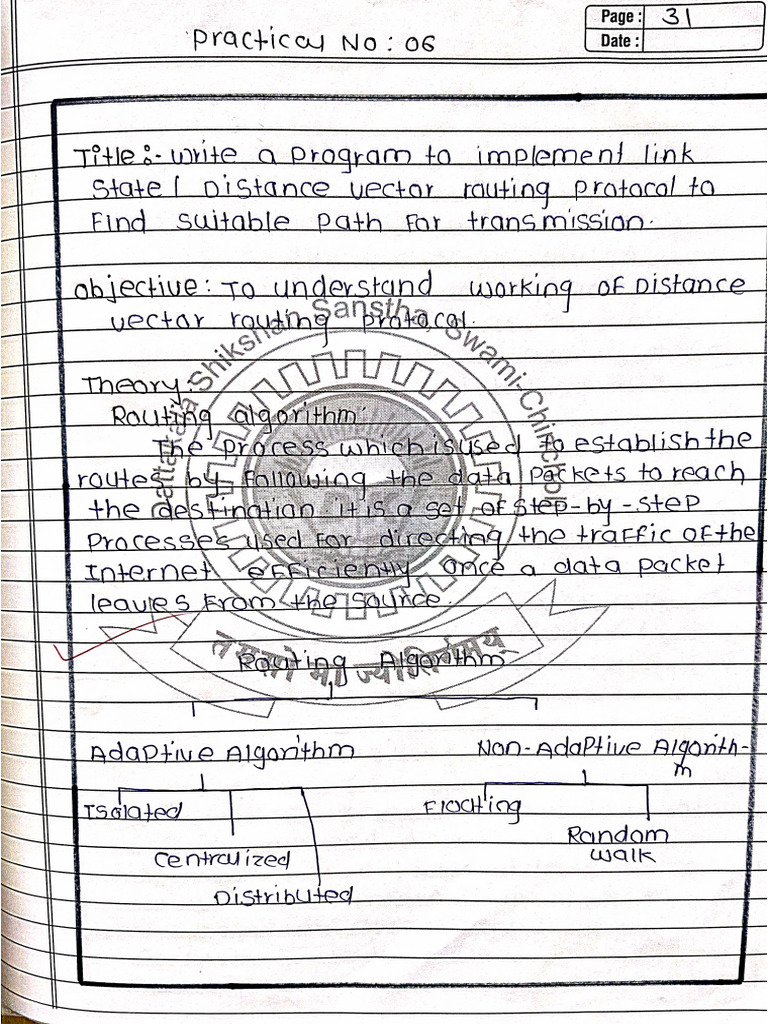 Practical No: 06
Page: 31
Date:
Title:- Write a program to implement link
State / Distance vector routing protocol to
Find suitable path for transmission.
Objective: To understand working of Distance
vector routing protocol.
Theory:
Routing algorithm:
The process which is used to establish the
routes by following the data packets to reach
the destination it is a set of step-by-step
Processes used for directing the traffic of the
Internet efficiently once a data packet
leaves from the source.
Routing Algorithm
Adaptive Algorithm
Non-Adaptive Algorith-
m
Isolated
Centralized
Distributed
Floating
Random
walk
Shikshan Sanstha, Swami-Chincholi